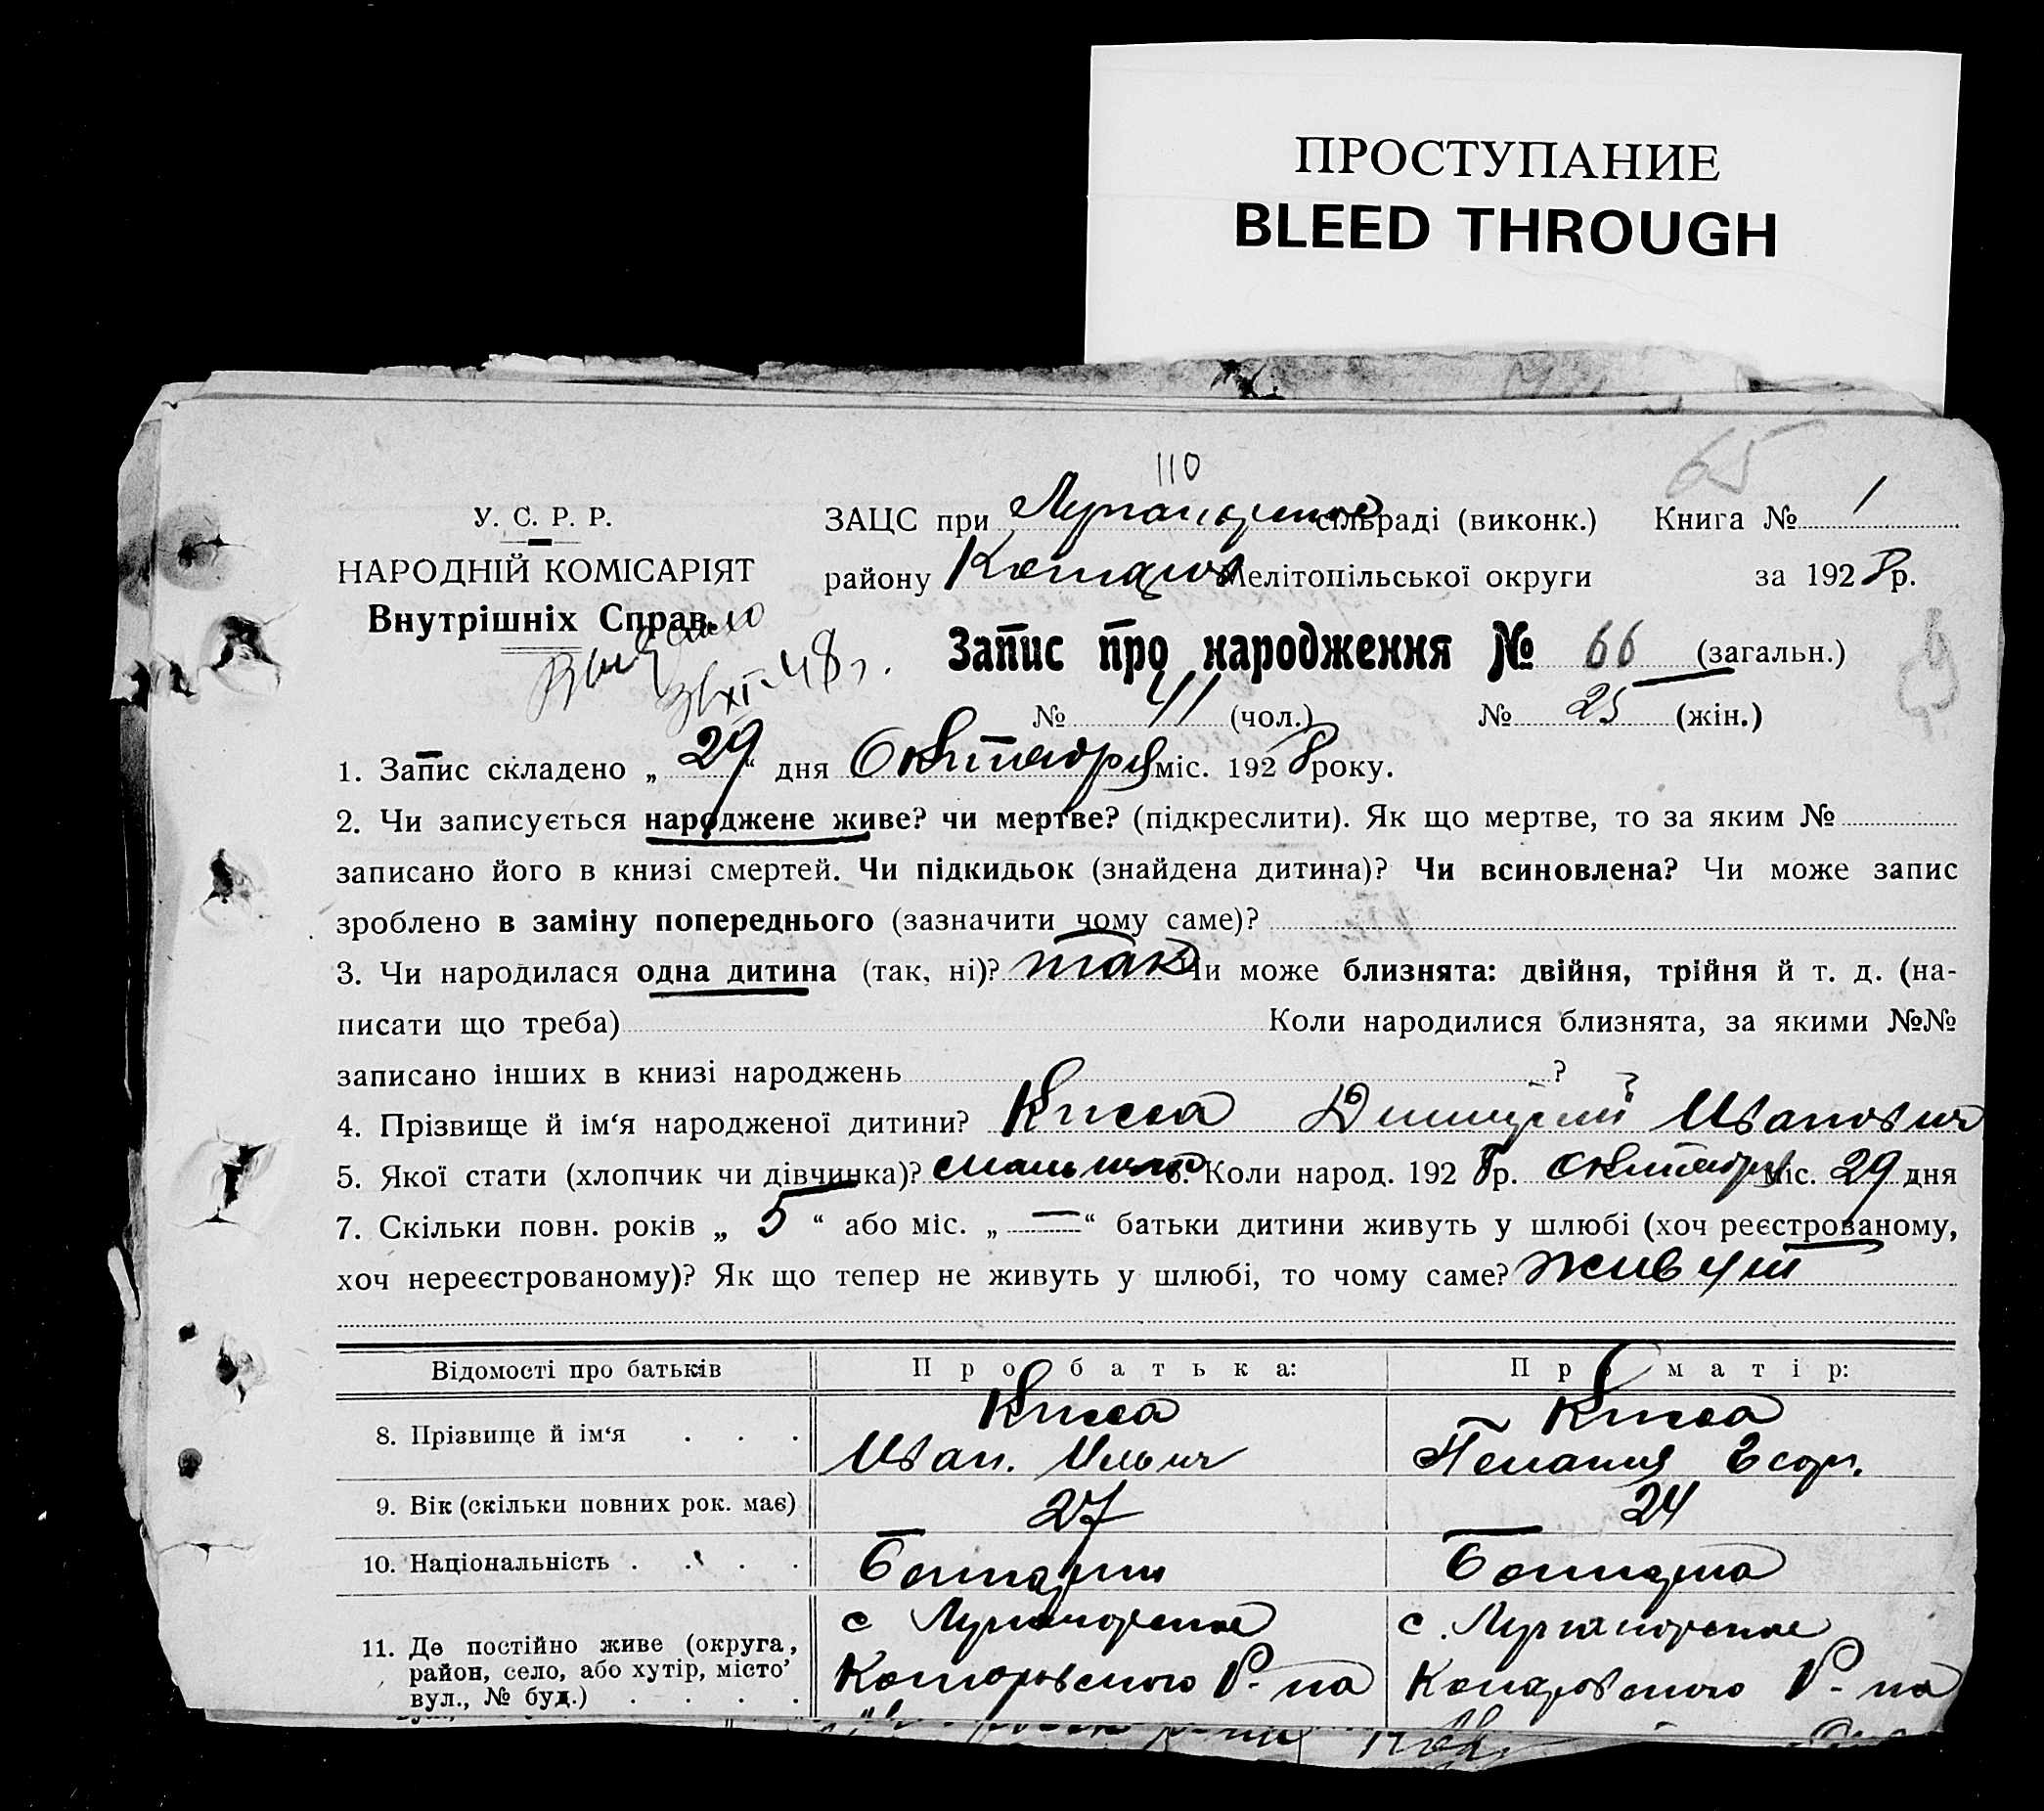 ПРОСТУПАНИЕ
BLEED THROUGH
110
65
У. С. Р. Р.
НАРОДНІЙ КОМІСАРІЯТ
Внутрішніх Справ.
ЗАЦС при сільраді (виконк.) Книга № 1
району Мелітопільської округи за 1928 р.
Запис про народження № 66 (загальн.)
№ 41 (чол.) № 25 (жін.)
1. Запис складено „29“ дня Октября міс. 1928 року.
2. Чи записується народжене живе? чи мертве? (підкреслити). Як що мертве, то за яким №
записано його в книзі смертей. Чи підкидьок (знайдена дитина)? Чи всиновлена? Чи може запис
зроблено в заміну попереднього (зазначити чому саме)?
3. Чи народилася одна дитина (так, ні)? так Чи може близнята: двійня, трійня й т. д. (на-
писати що треба) Коли народилися близнята, за якими №№
записано інших в книзі народжень ?
4. Прізвище й ім‘я народженої дитини? Кисса Димитрий Иванович
5. Якої стати (хлопчик чи дівчинка)? мальчик 6. Коли народ. 1928 р. октября міс. 29 дня
7. Скільки повн. років „5“ або міс. „—“ батьки дитини живуть у шлюбі (хоч реєстрованому,
хоч нереєстрованому)? Як що тепер не живуть у шлюбі, то чому саме? живут
Відомості про батьків Про батька: Про матір:
8. Прізвище й ім‘я . . . Кисса Кисса
Иван. Ильич Пелагия Егор.
9. Вік (скільки повних рок. має) 27 24
10. Національність . . . . Болгарин Болгарка
11. Де постійно живе (округа, район, село, або хутір, місто, вул., № буд.) . . . .
с
с.
Р-на Р-на